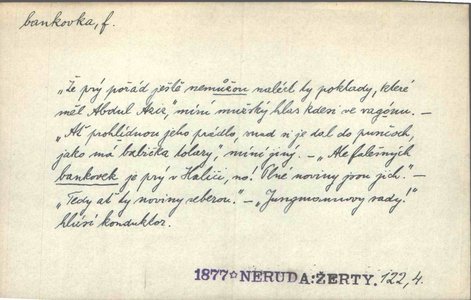 bankovka, f.
„Že prý pořád ještě nemůžou nalézt ty poklady, které
měl Abdul Aziz," míní mužský hlas kdesi ve vagónu. –
„Ať prohlídnou jeho prádlo, snad si je dal do punčoch,
jako má babička tolary," míní jiný. – „Ale falešných
bankovek je prý v Haliči, no! Plné noviny jsou jich." –
„Tedy ať ty noviny seberou." – „Jungmannovy sady!"
hlásí konduktor.
1877 NERUDA: ŽERTY. 122, 4.